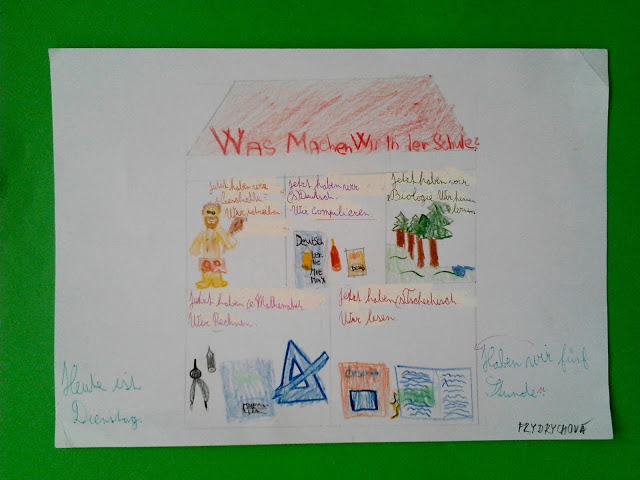 Was Machen Wir In der Schule?
Jetzt haben wir
Geschichte
Wir schreiben
Jetzt haben wir
Deutsch.
Wir Computieren
Jetzt haben wir
Biologie Wir
lernen
Deutsch
Jetzt haben Mathematik
Wir Rechnen.
Jetzt haben Tschechisch
Wir lesen
Heute ist
Dienstag.
Haben wir fünf
Stunde
FRYDRYCHOVÁ